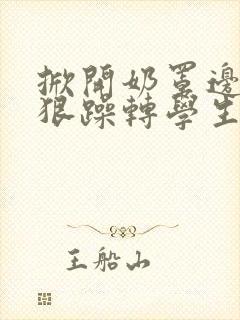 掀開奶罩邊
狠躁轉學生
王船山